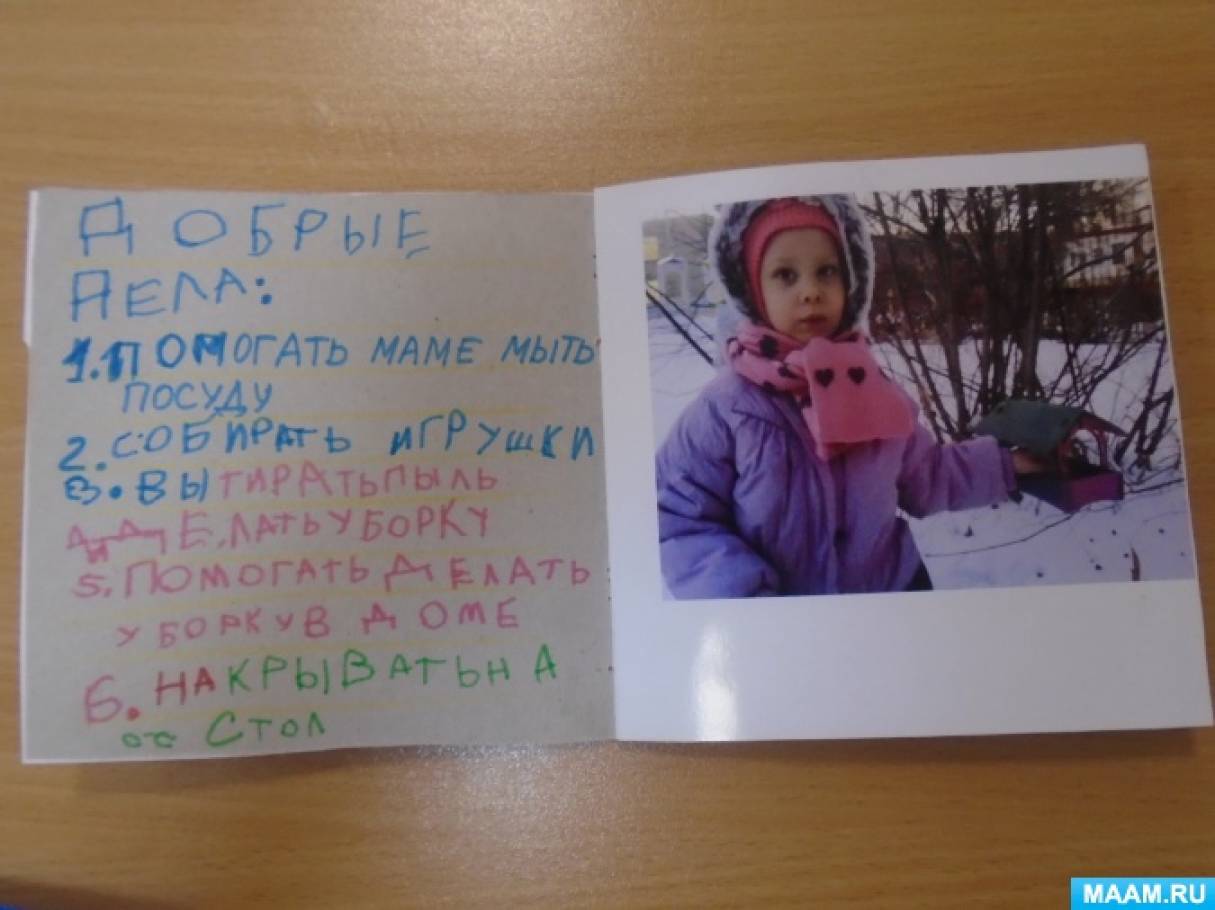 ДОБРЫЕ
ДЕЛА:
1. ПОМОГАТЬ МАМЕ МЫТЬ
ПОСУДУ
2. СОБИРАТЬ ИГРУШКИ
3. ВЫТИРАТЬ ПЫЛЬ
ДЕЛАТЬ УБОРКУ
5. ПОМОГАТЬ ДЕЛАТЬ
УБОРКУ В ДОМЕ
6. НАКРЫВАТЬ НА
СТОЛ
MAAM.RU